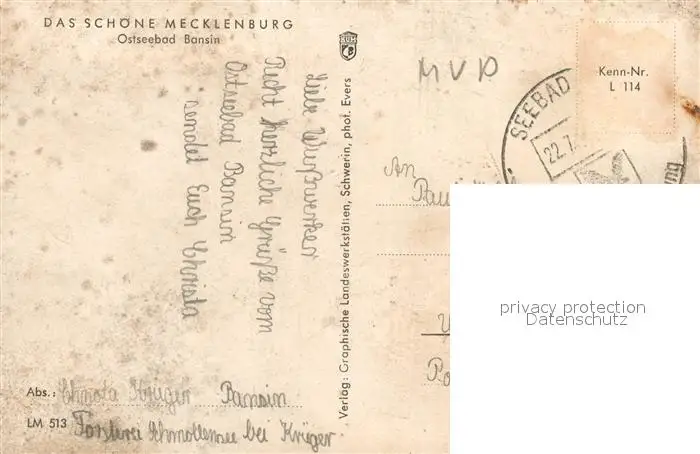 DAS SCHÖNE MECKLENBURG
Ostseebad Bansin
Liebe
Recht herzliche Grüße vom
Ostseebad Bansin
sendet Euch Christa
Abs.: Christa Krüger Bansin
LM 513 Försterei Schmollensee bei Krüger.
Verlag: Graphische Landeswerkstätten, Schwerin, phot. Evers
MVP
Kenn-Nr.
L 114
SEEBAD
22.7.
An
privacy protection
Datenschutz